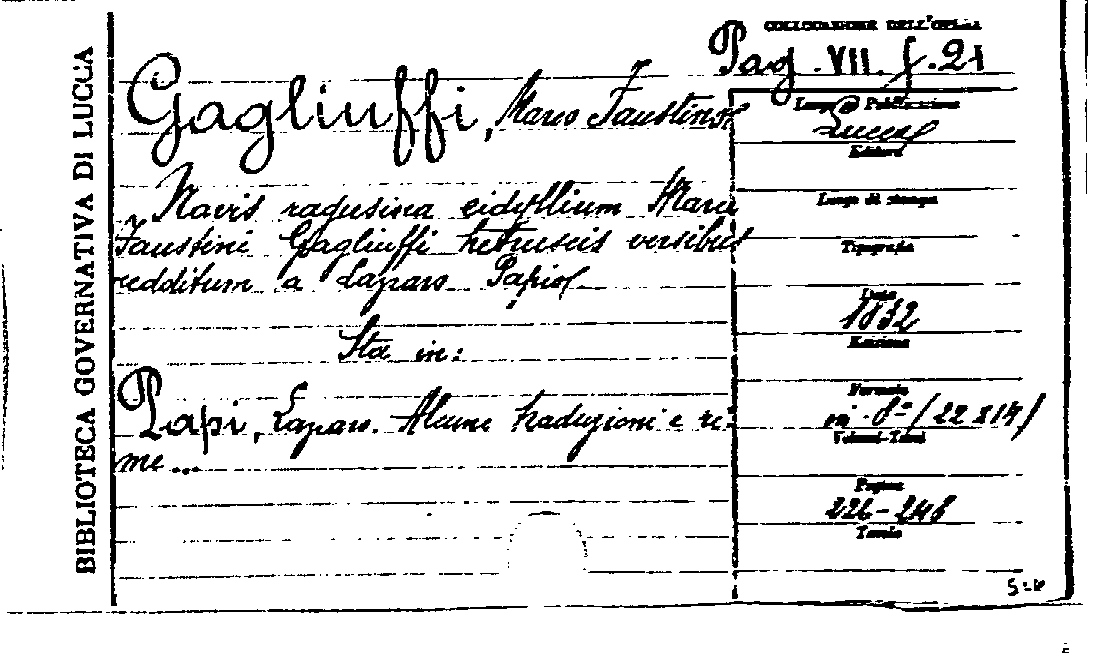 BIBLIOTECA GOVERNATIVA DI LUCCA
COLLOCAZIONE DELL'OPERA
Pag. VII. f. 21
Gagliuffi, Marco Faustino
Navis ragusina eidyllium Marci
Faustini Gagliuffi hetruscis versibus
redditum a Lazaro Papio
Sta in:
Papi, Lazaro. Alcune traduzioni e ri-
me...
Luogo di Pubblicazione
Lucca
Editore
Luogo di stampa
Tipografia
Data
1832
Edizione
Formato
in 8º (22x14)
Volumi-Tomi
Pagine
226-248
Tavole